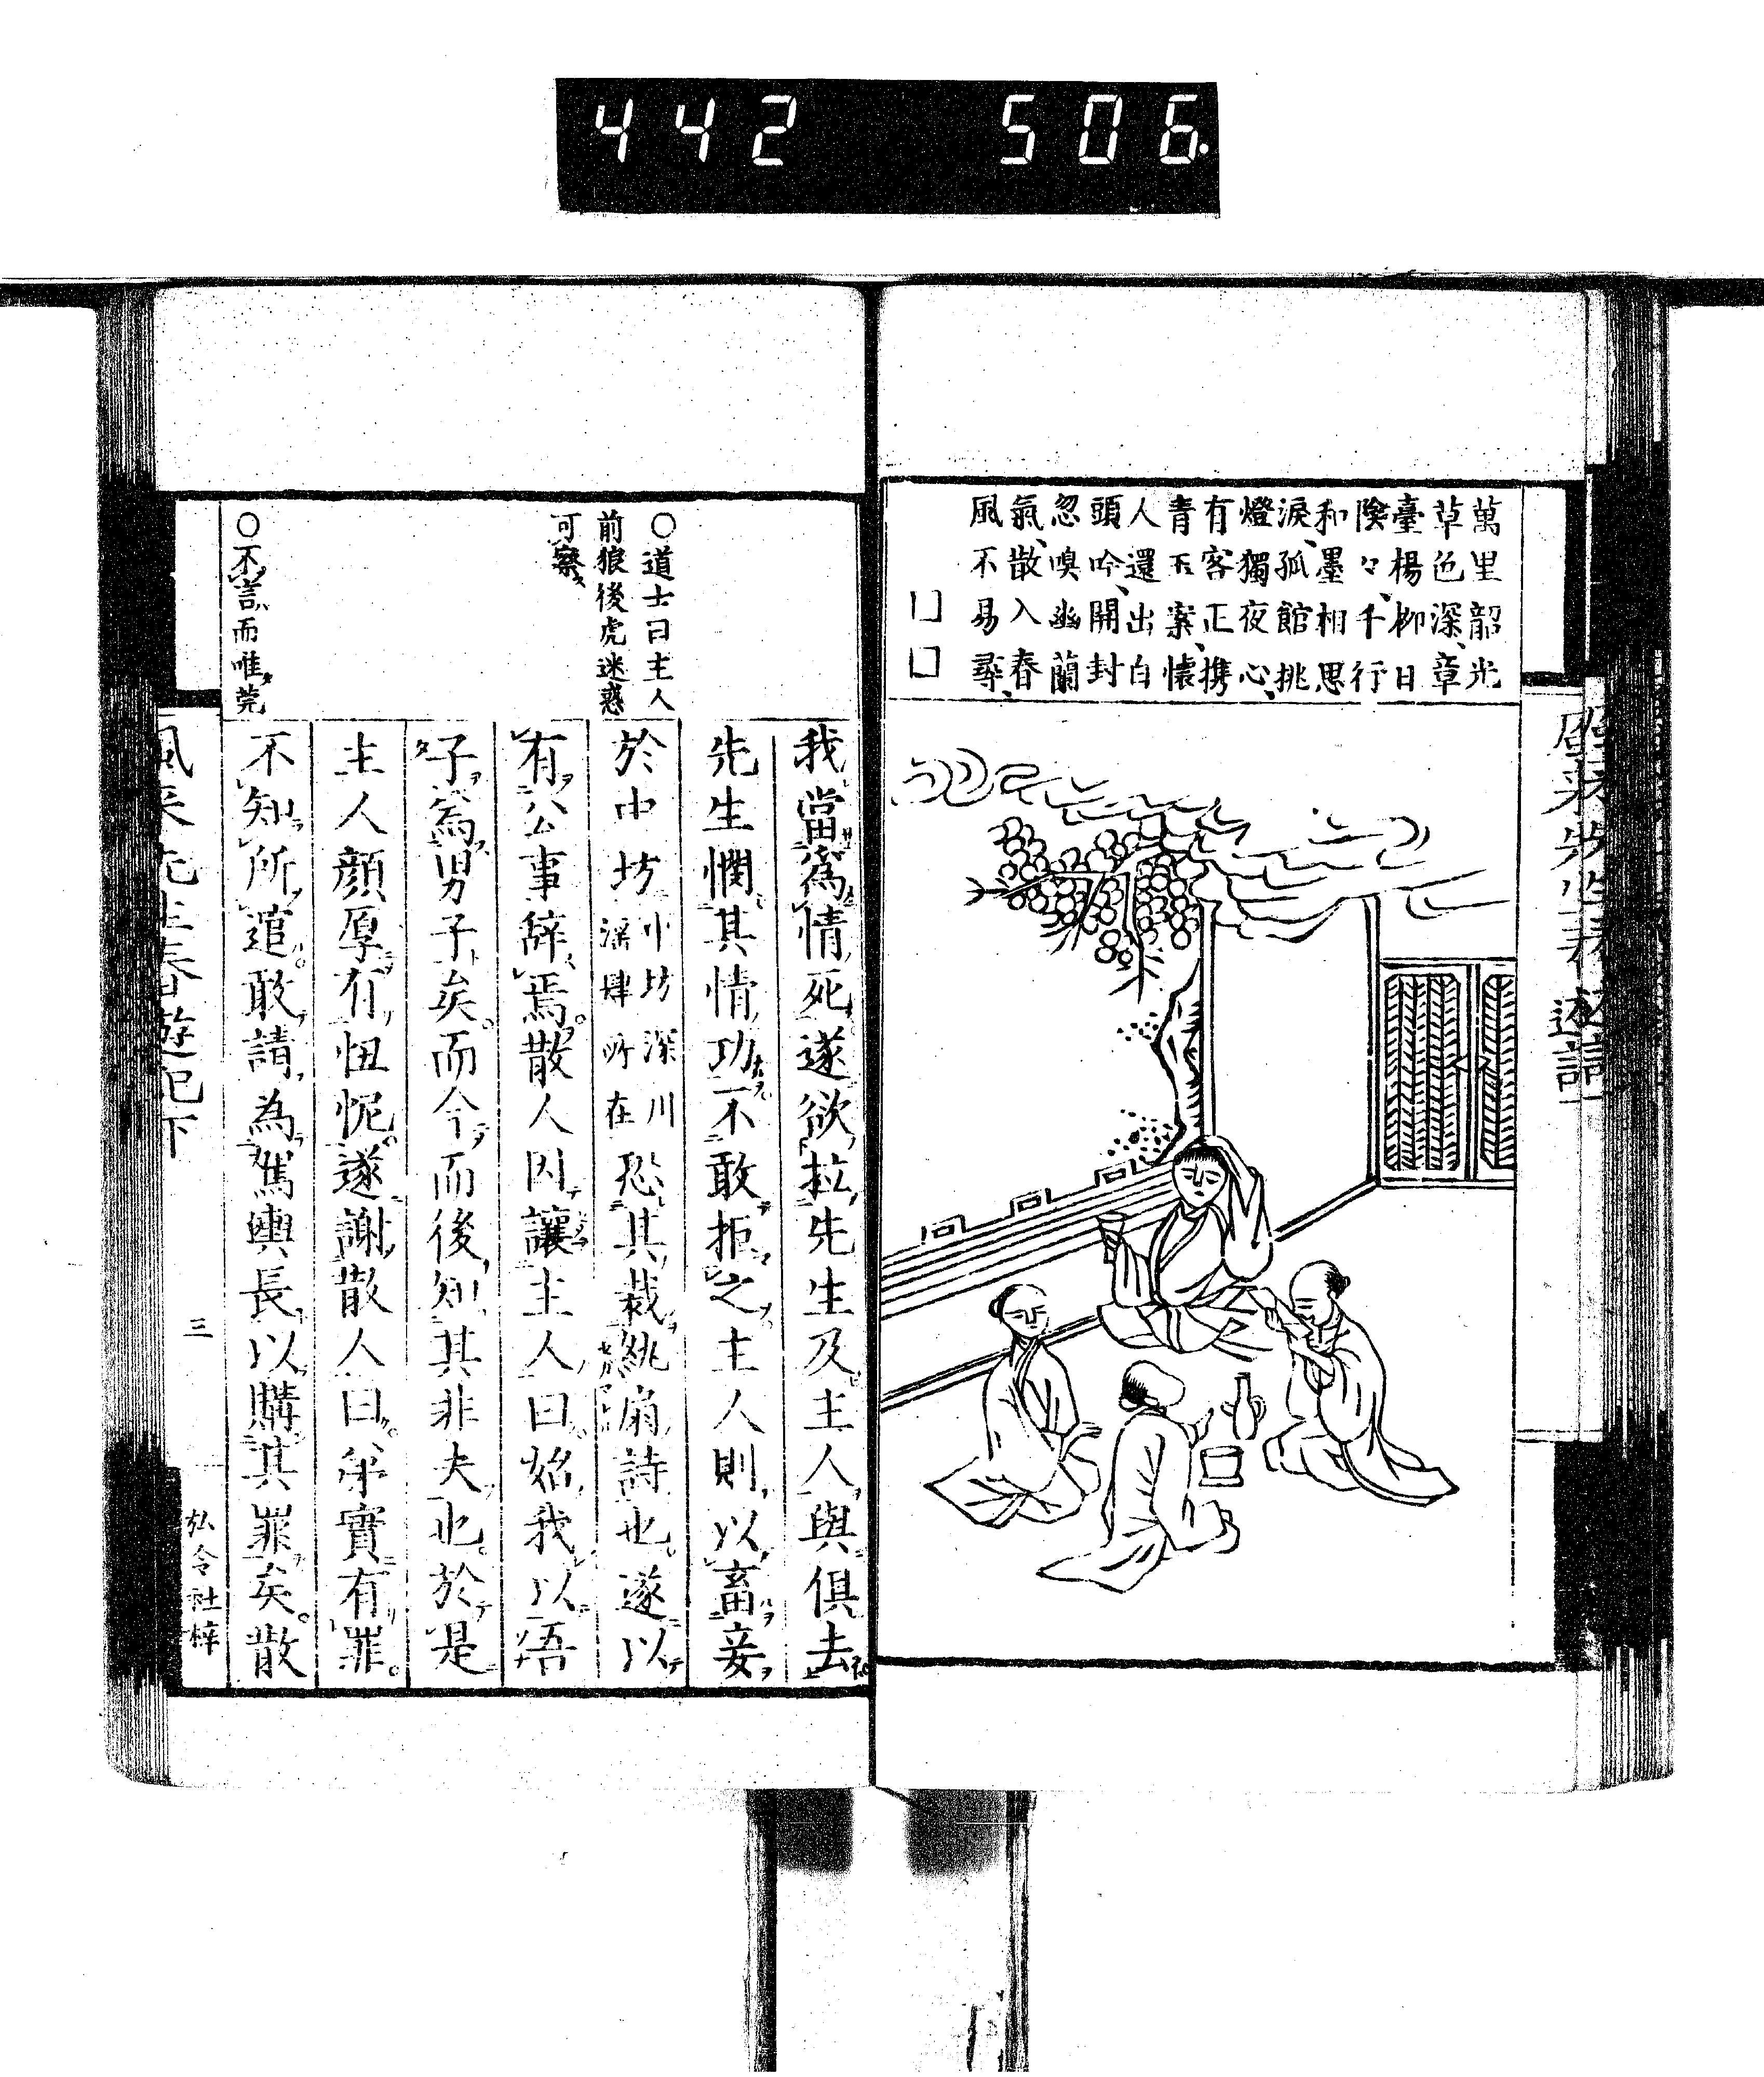 442 506.
萬里韶光
草色深章
臺楊柳日
陰々千行
和墨相思
淚孤館挑
燈獨夜心
有客正携
青玉案懷
人還出白
頭吟開封
忽嗅幽蘭
氣散入春
風不易尋
□□
○道士曰主人
前狼後虎迷惑
可察
○不言而唯莞
我當為情死遂欲拉先生及主人與俱去
先生憫其情功不敢拒之主人則以畜妾
於中坊
中坊深川
深肆所在
恐其裁絩扇詩也遂以
有公事辭焉散人因讓主人曰始我以吾
子為男子矣而今而後知其非夫也於是
主人顏厚有忸怩遂謝散人曰弟實有罪
不知所逭敢請為駕輿長以購其罪矣散
先生春遊記下
三
弘令社梓